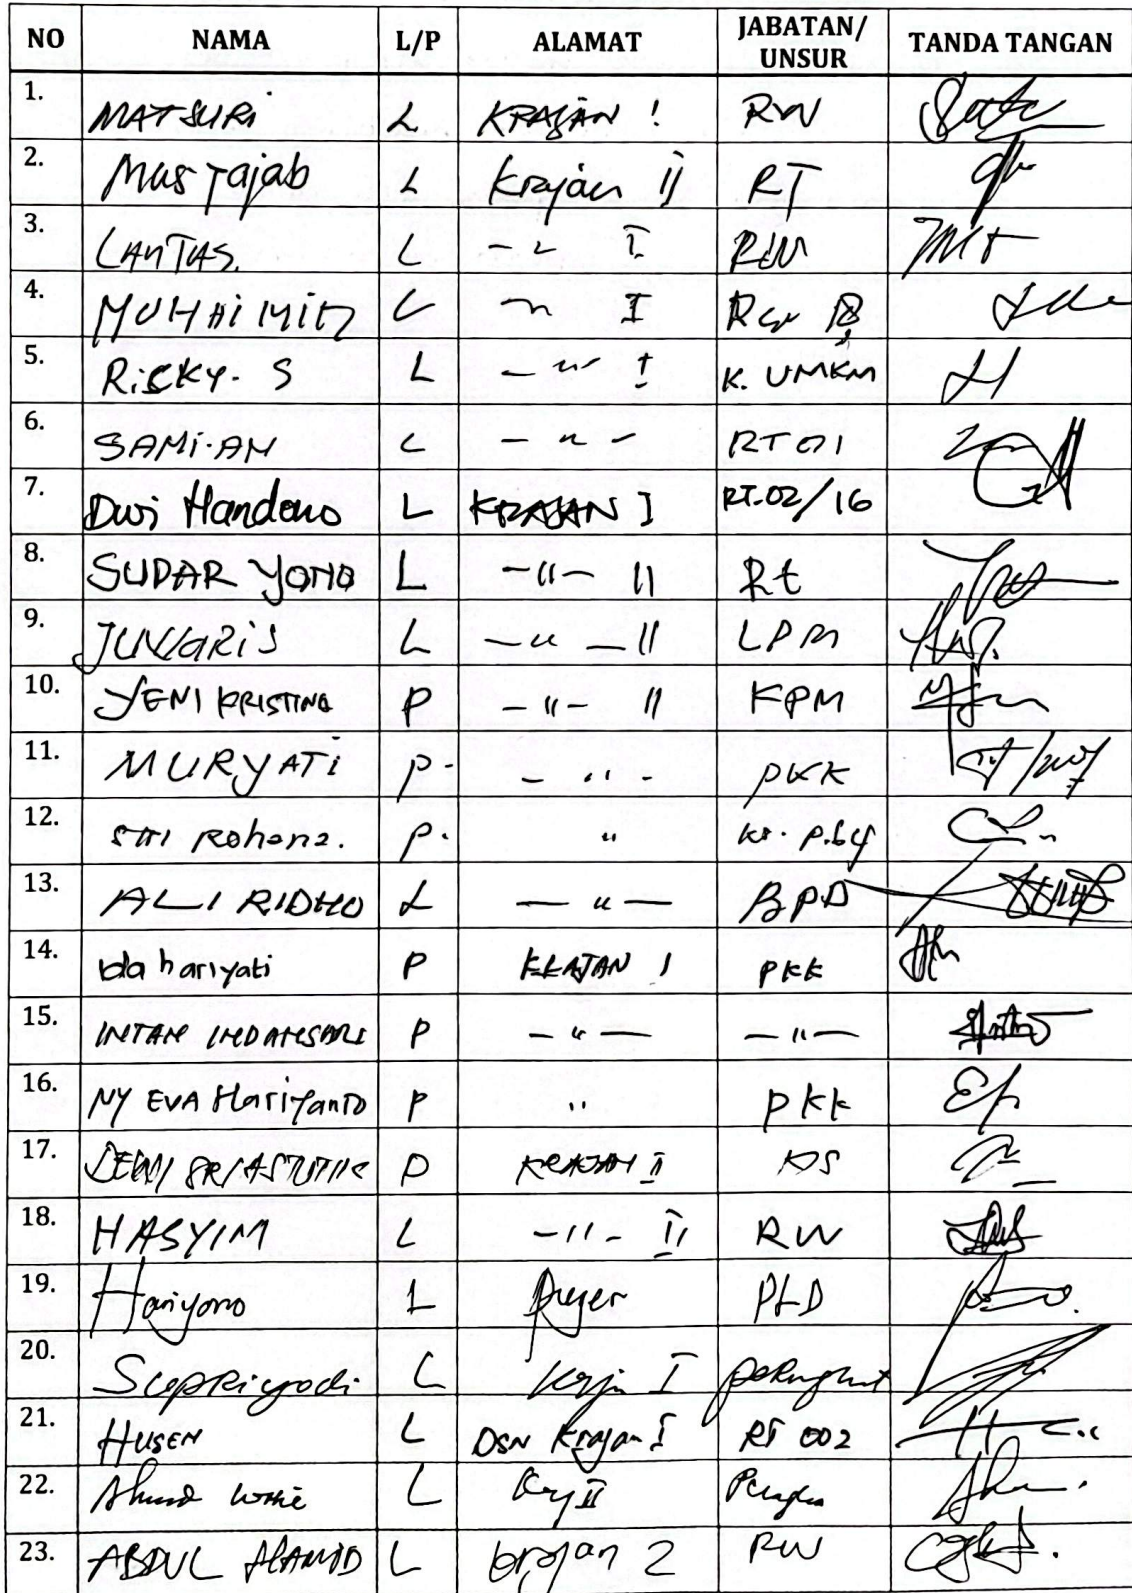 NO NAMA L/P ALAMAT JABATAN/ UNSUR TANDA TANGAN
1. MATSURi L KRAJAN I RW
2. Mustajab L Krajan II RT
3. LANTAS. L - " I RW
4. MUHAiMiN L " I RW
5. RiCKY. S L - " - I K. UMKM
6. SAMi·AN L - " - RT 01
7. Dwi Handono L KRAJAN I RT.02/16
8. SUDAR YONO L -"- II Rt
9. JUWARiS L - " - II LPM
10. YENI KRISTINA P - " - II KPM
11. MURYATi P - - " - PKK
12. Siti Rohana. P. "
13. ALI RIDHO L - " - BPD
14. Ida hariyati P KRAJAN I PKK
15. INTAN INDAHSARI P - " - - " -
16. NY EVA Hariyanto P " PKK
17. DEWI SRI ASTUTIK P KRAJAN II
18. HASYIM L - " - II RW
19. Hariyono L PLD
20. Supriyadi L I Perangkat
21. HUSEN L DSN Krajan I RT 002
22. Ahmad L II
23. ABDUL HAMID L krajan 2 RW